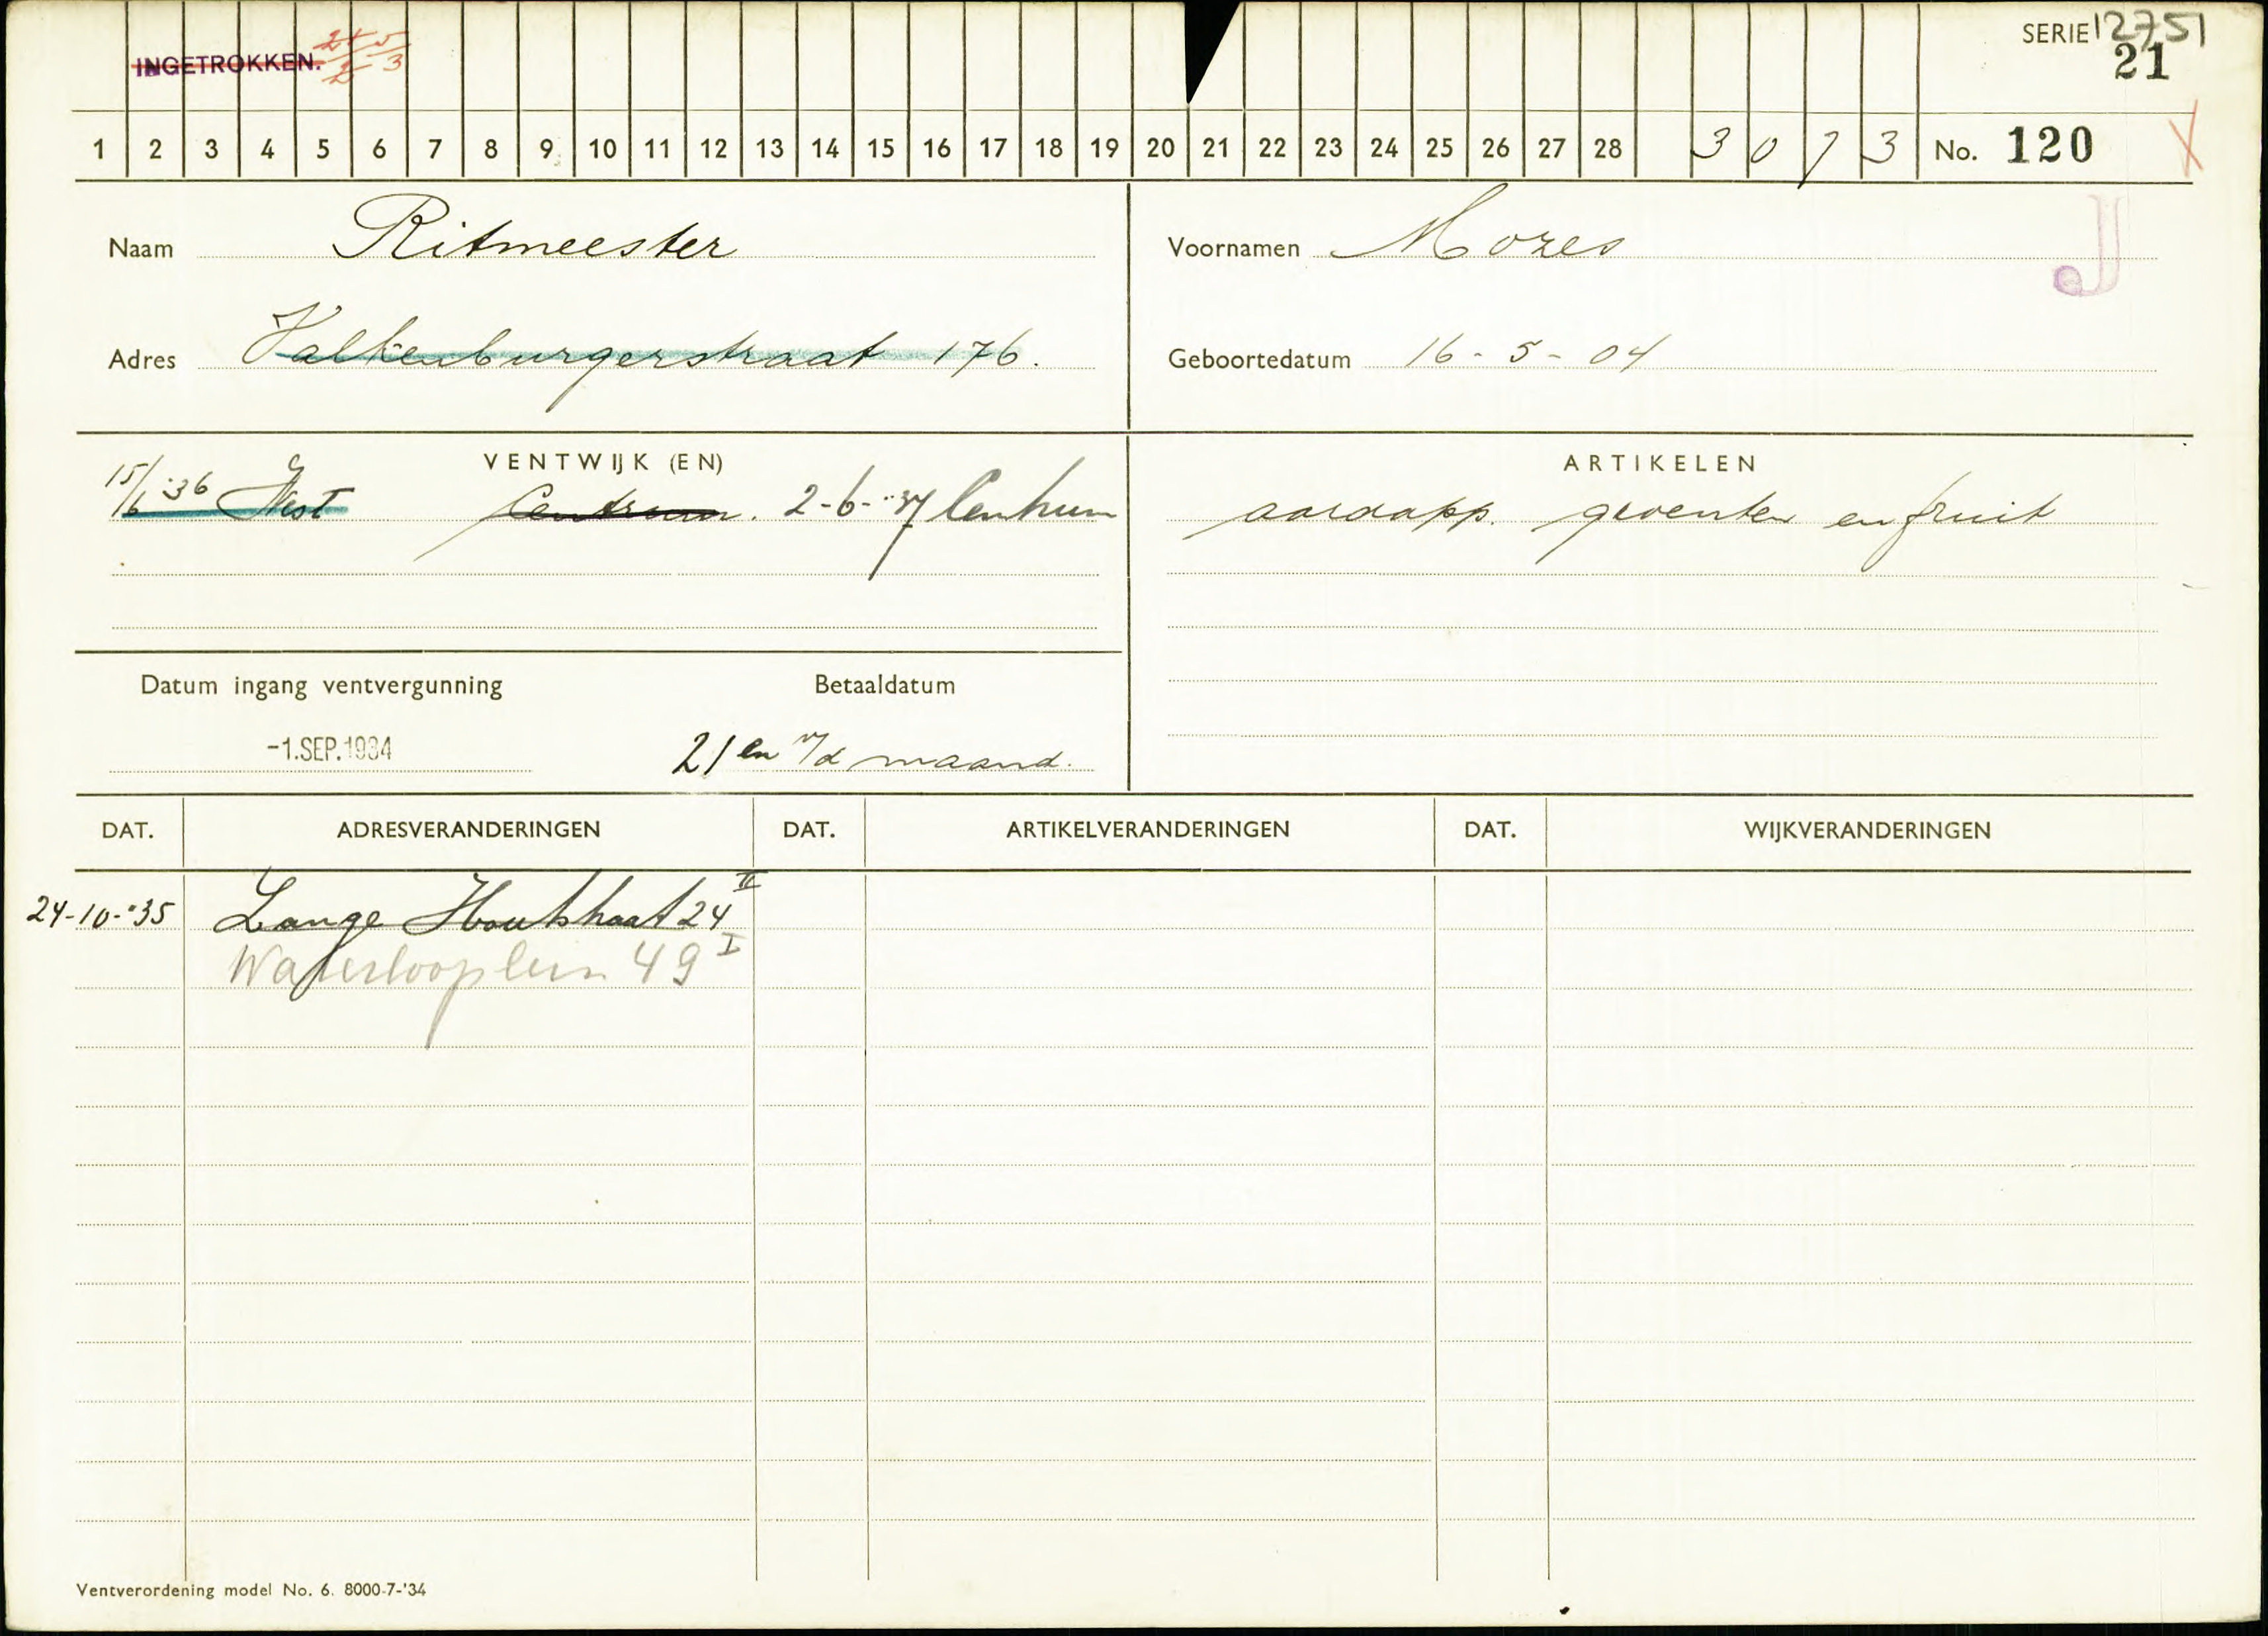 SERIE 12751
INGETROKKEN.
21
1 2 3 4 5 6 7 8 9 10 11 12 13 14 15 16 17 18 19 20 21 22 23 24 25 26 27 28 3 0 7 3 No. 120
Naam Ritmeester Voornamen Mozes
J
Adres Valkenburgerstraat 176. Geboortedatum 16-5-04
VENTWIJK (EN) ARTIKELEN
15/6 '36 West Centrum. 2-6-'37 Centrum aardapp. groenten en fruit
Datum ingang ventvergunning Betaaldatum
-1.SEP.1934 21en v/d maand.
DAT. ADRESVERANDERINGEN DAT. ARTIKELVERANDERINGEN DAT. WIJKVERANDERINGEN
24-10-'35 Lange Houtstraat 24 II
Waterlooplein 49 I
Ventverordening model No. 6. 8000-7-'34